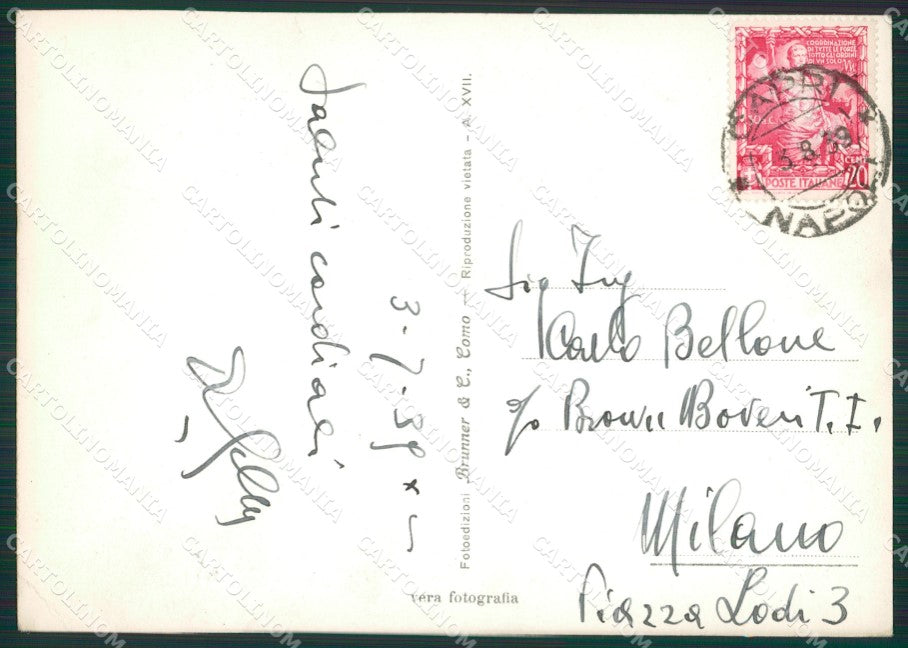 COORDINAZIONE
DI TUTTE LE FORZE
SOTTO GLI ORDINI
DI VN SOLO
POSTE ITALIANE
CENT 20
CAPRI
8.39
NAPOLI
Saluti cordiali
3-7-39 x
Fotoedizioni Brunner & C., Como — Riproduzione vietata - A. XVII.
vera fotografia
Sig Ing
Carlo Bellone
c/o Brown Boveri T.I.
Milano
Piazza Lodi 3
CARTOLINOMANIA